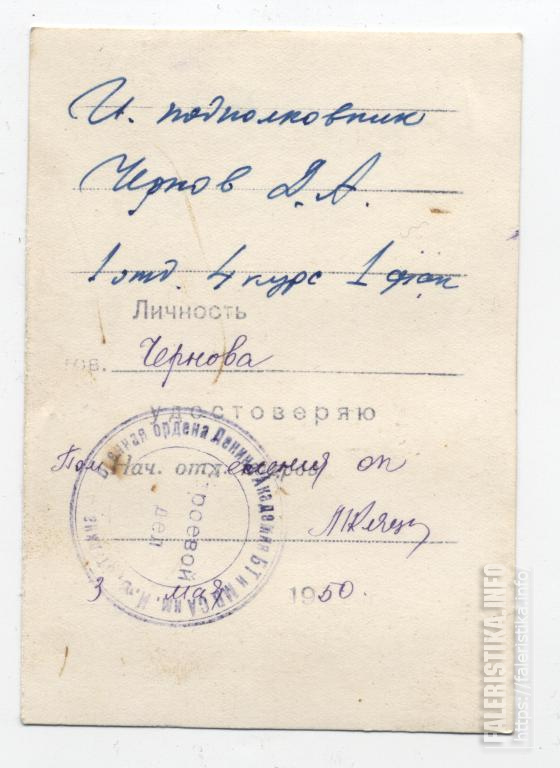 И. подполковник
Чернов Д.А.
1 отд. 4 курс 1 фак
Личность
тов. Чернова
удостоверяю
Пом Нач. отделения оп
3 мая 1950.
Военная ордена Ленина Академия БТ и МВ СА им. И.В. Сталина
Строевой
отдел
FALERISTIKA.INFO
https://faleristika.info